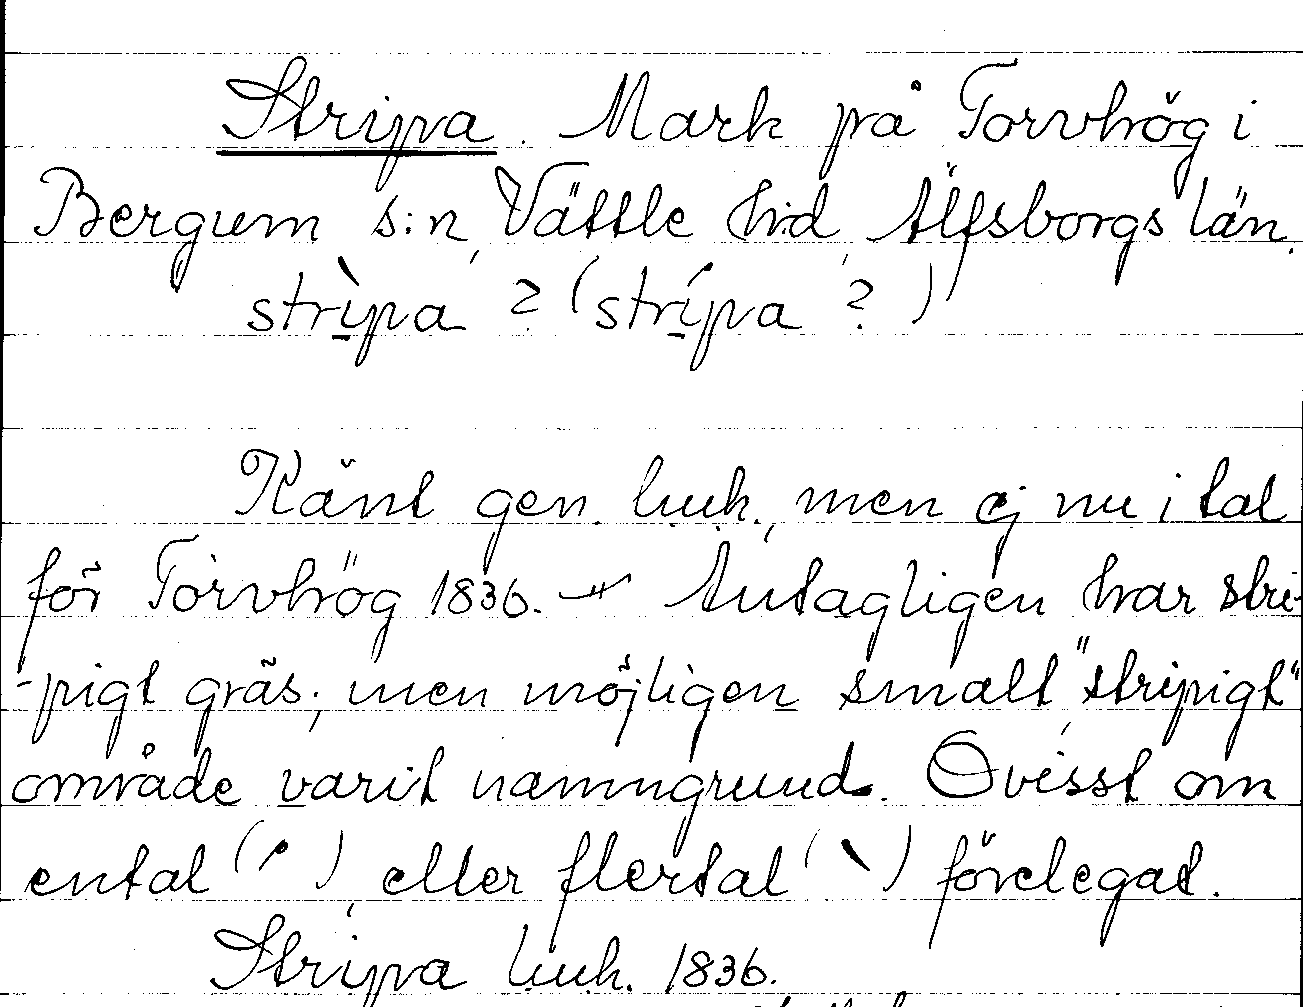 Stripa. Mark på Torvhög i
Bergum s:n, Vättle hd, Älfsborgs län.
strìpa ? (strípa ? )
Känt gen. luuk., men ej nu i tal
för Torvhög 1836. — Antagligen har stri-
-pigt gräs; men möjligen smalt, "stripigt"
område varit namngrund. Ovisst om
ental (ˊ), eller flertal (ˋ) förelegat.
Stripa luuk. 1836.